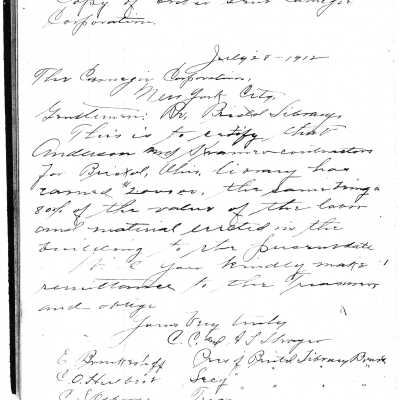 Copy of Order sent Carnegie
Corporation.
July 28 - 1912
The Carnegie Corporation,
New York City,
Gentlemen: Re, Bristol Library,
This is to certify that
Anderson and contractors
for Bristol, Ohio, library has
earned $2000.00, the same being
80% of the value of the labor
and material erected in the
building to the present date
Will you kindly make
remittance to the treasurer
and oblige
Yours Very truly
C. C. and
E. Pres of Bristol Library Board
C. O. Secy " " "
Treas